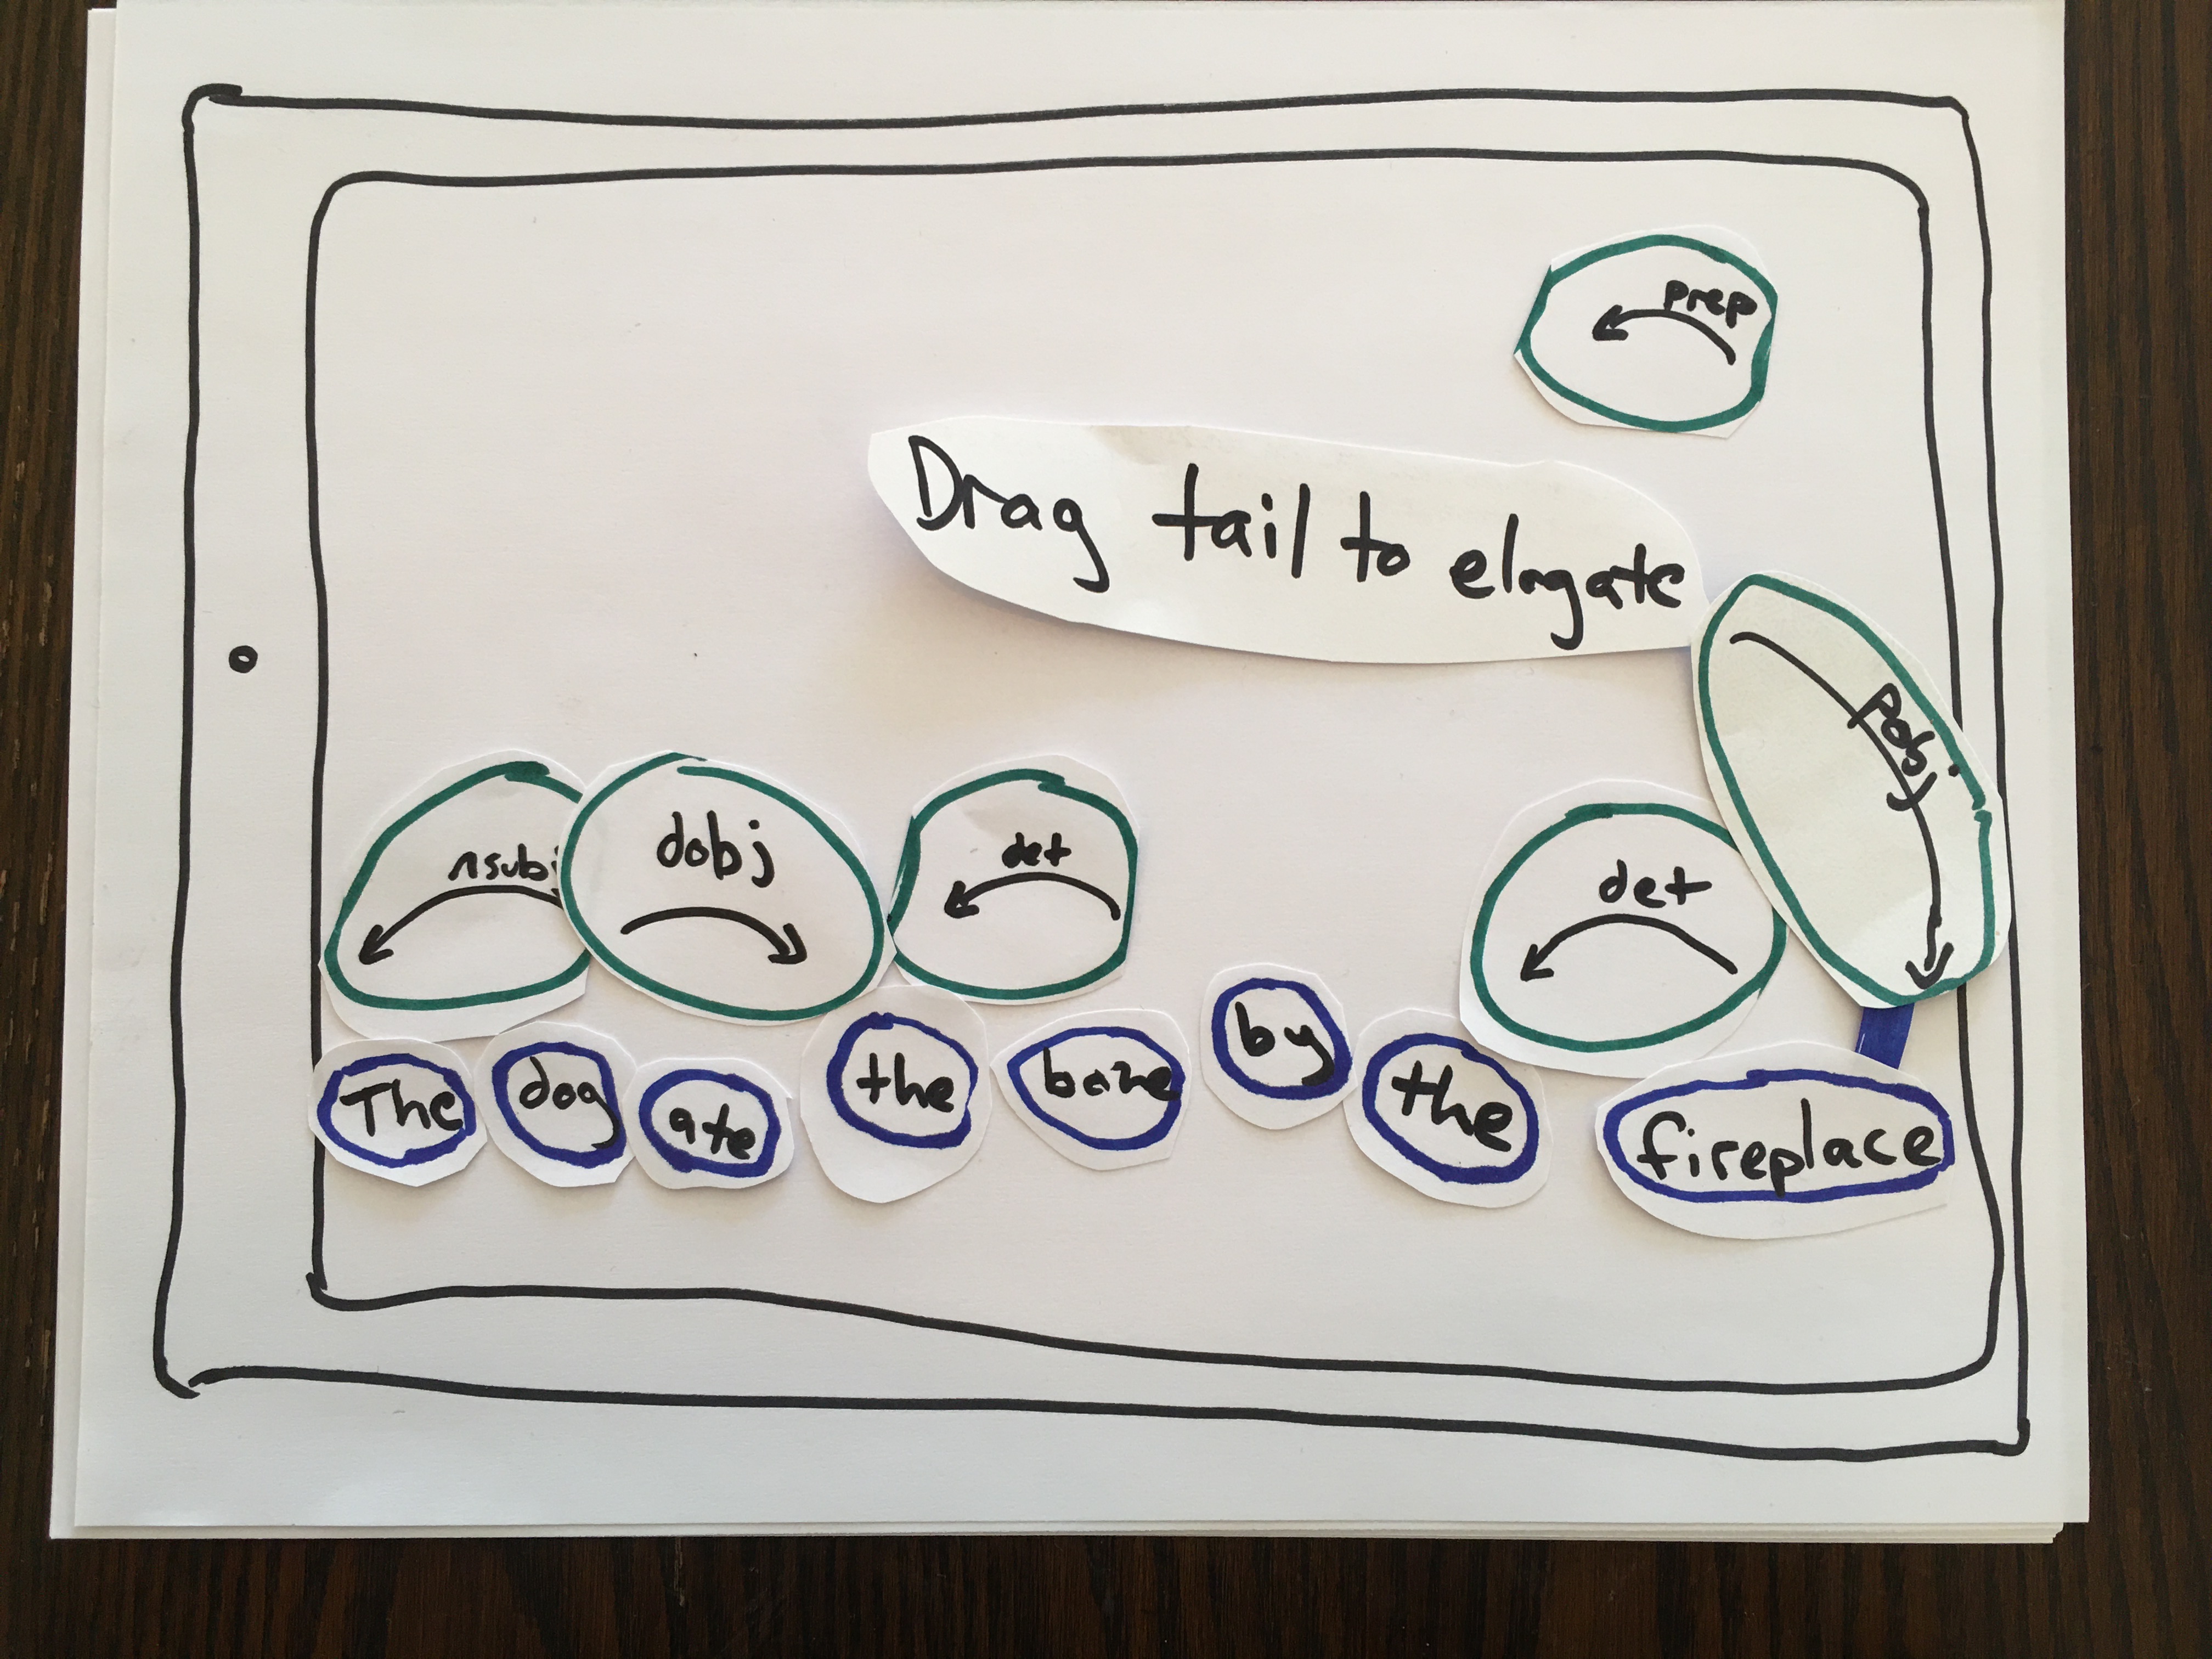 prep
Drag tail to elngate
pobj
nsubj dobj det det
The dog ate the bone by the fireplace